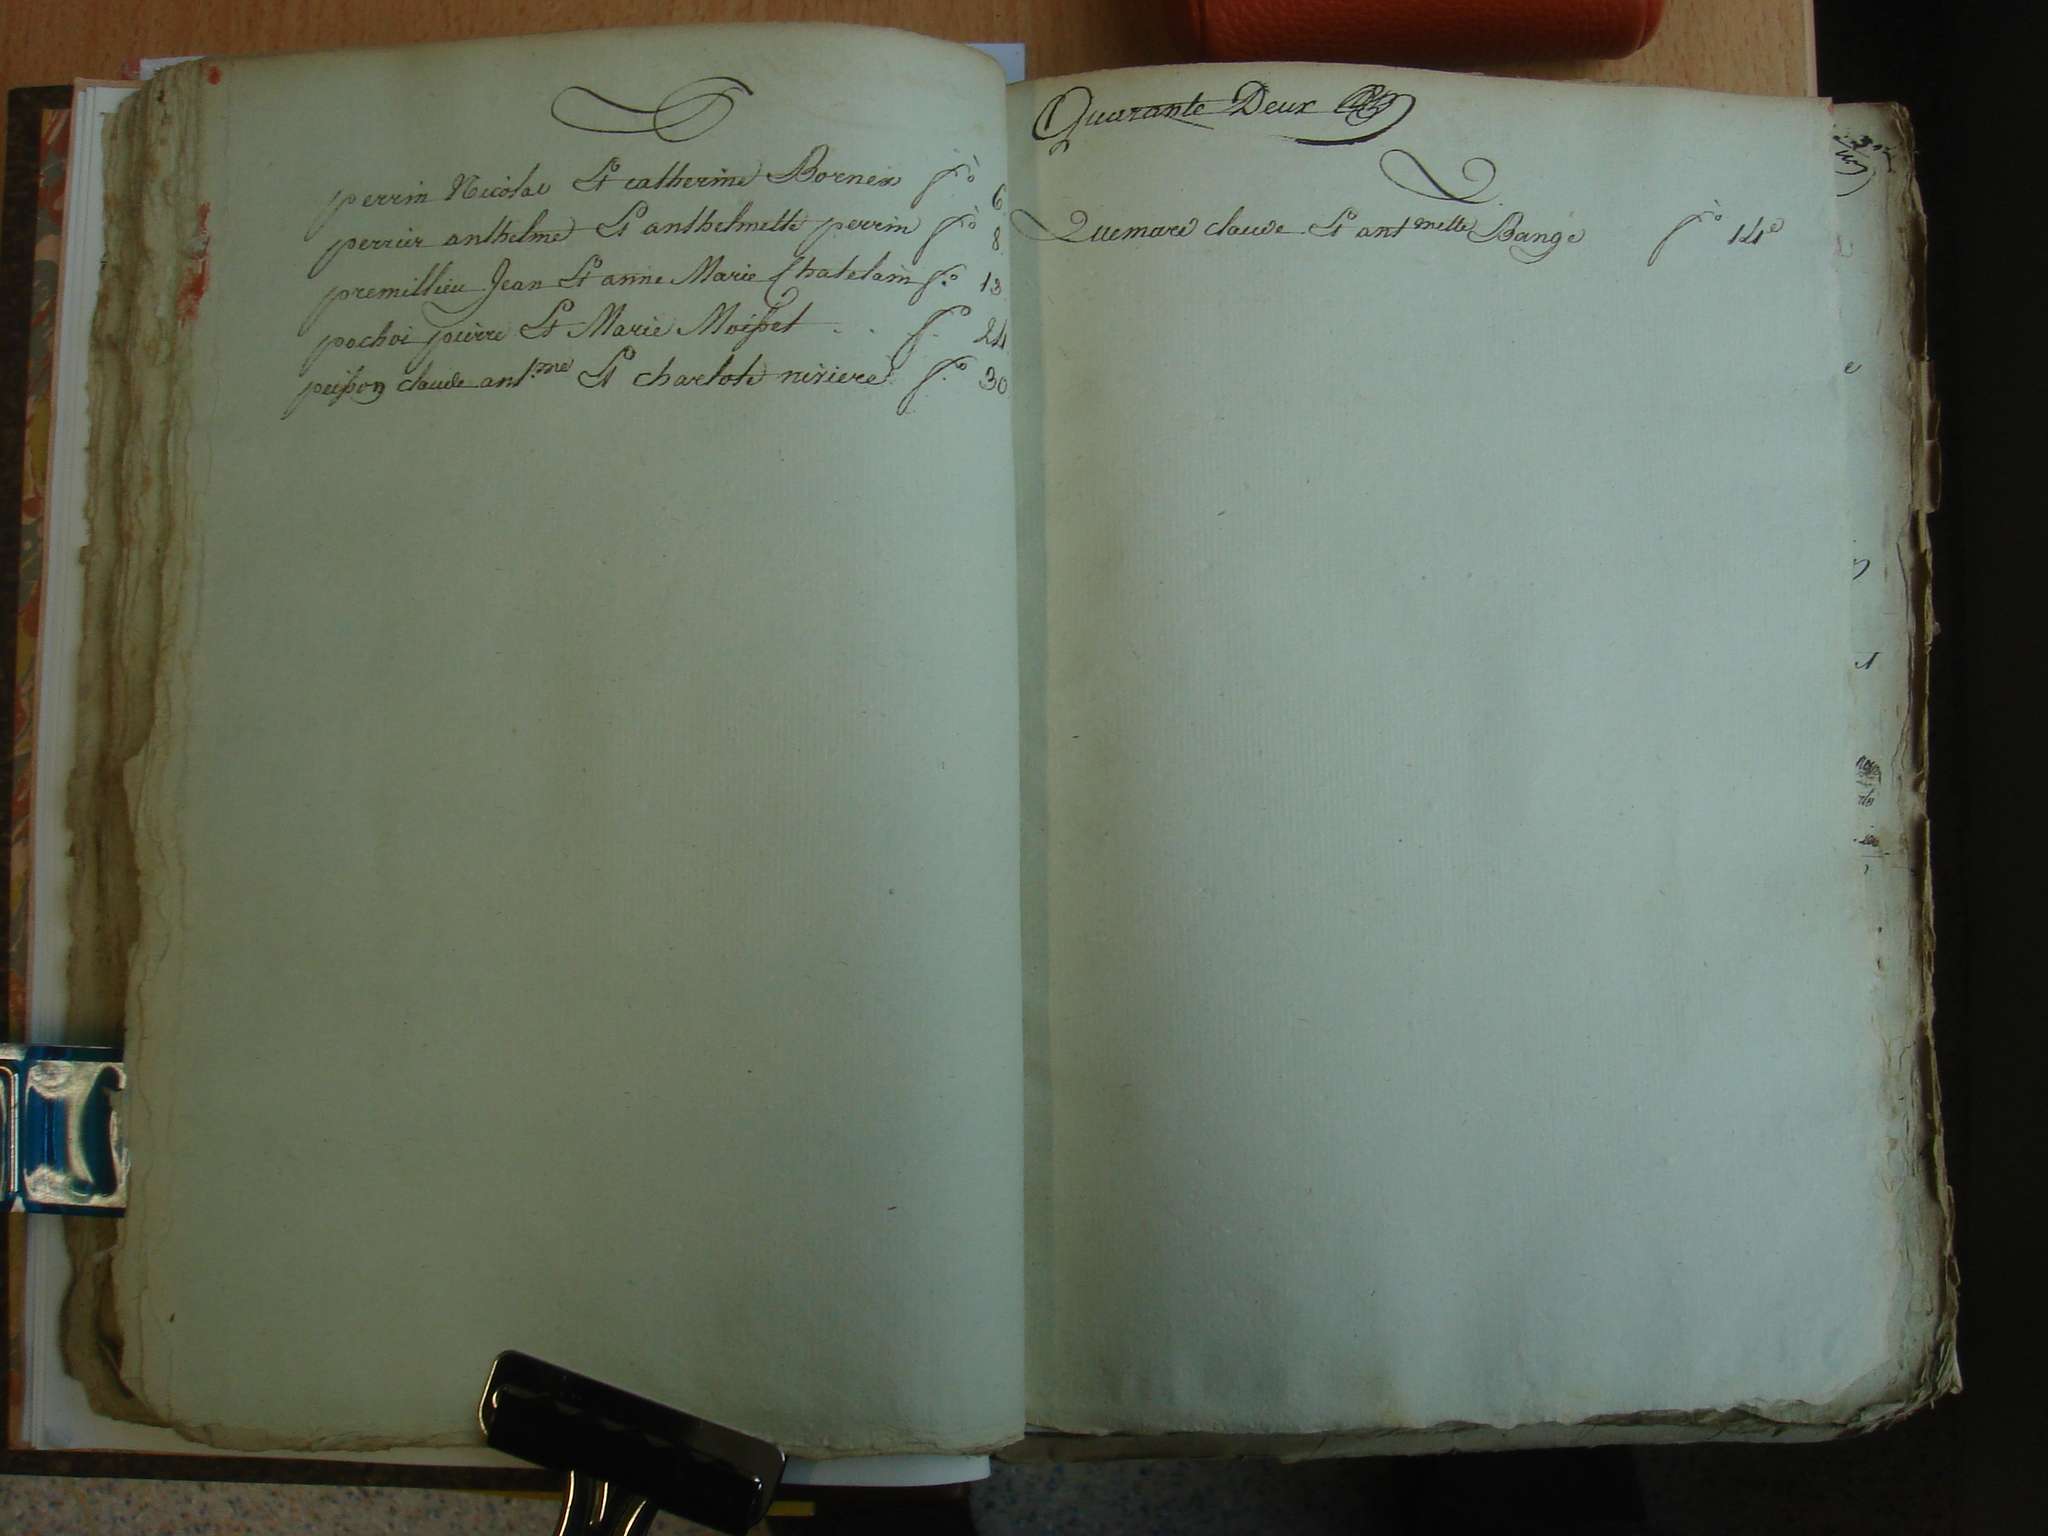 P
perrin Nicolae Et catherine Bornex f.º 6
perrier anthelme Et anthelmette perrin f.º 8
premillieu Jean Et anne Marie Chatelain f.º 13
pochoi pierre Et Marie Moisset f.º 24
peisson claude ant.me Et charlote niviere f.º 30
Quarante Deux
Q
Quemard claude Et antmette Bange f.º 14e